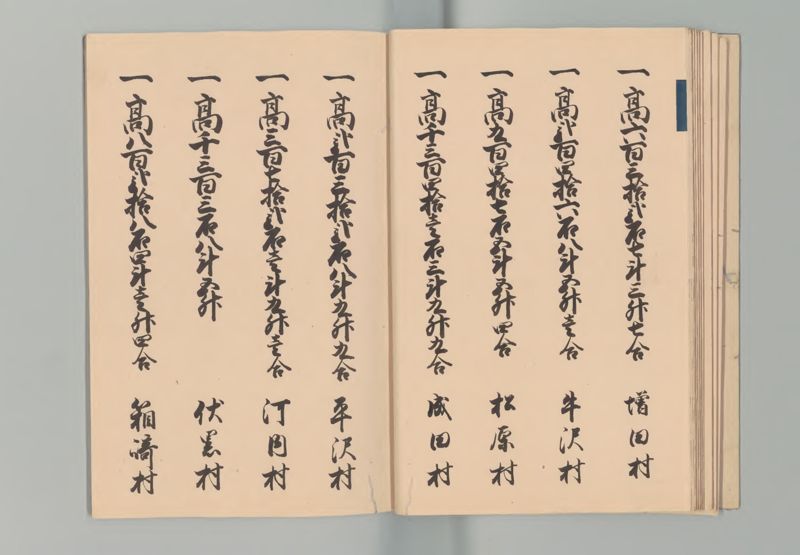 一高六百三拾弐石七斗三升七合 増田村
一高弐百四拾六石八斗五升壱合 牛沢村
一高九百四拾七石五斗五升四合 松原村
一高千三百四拾壱石三斗九升九合 成田村
一高弐百三拾弐石八斗九升九合 平沢村
一高三百七拾弐石壱斗九升壱合 村
一高千三百三石八斗五升 伏黒村
一高八百弐拾八石四斗壱升四合 箱崎村